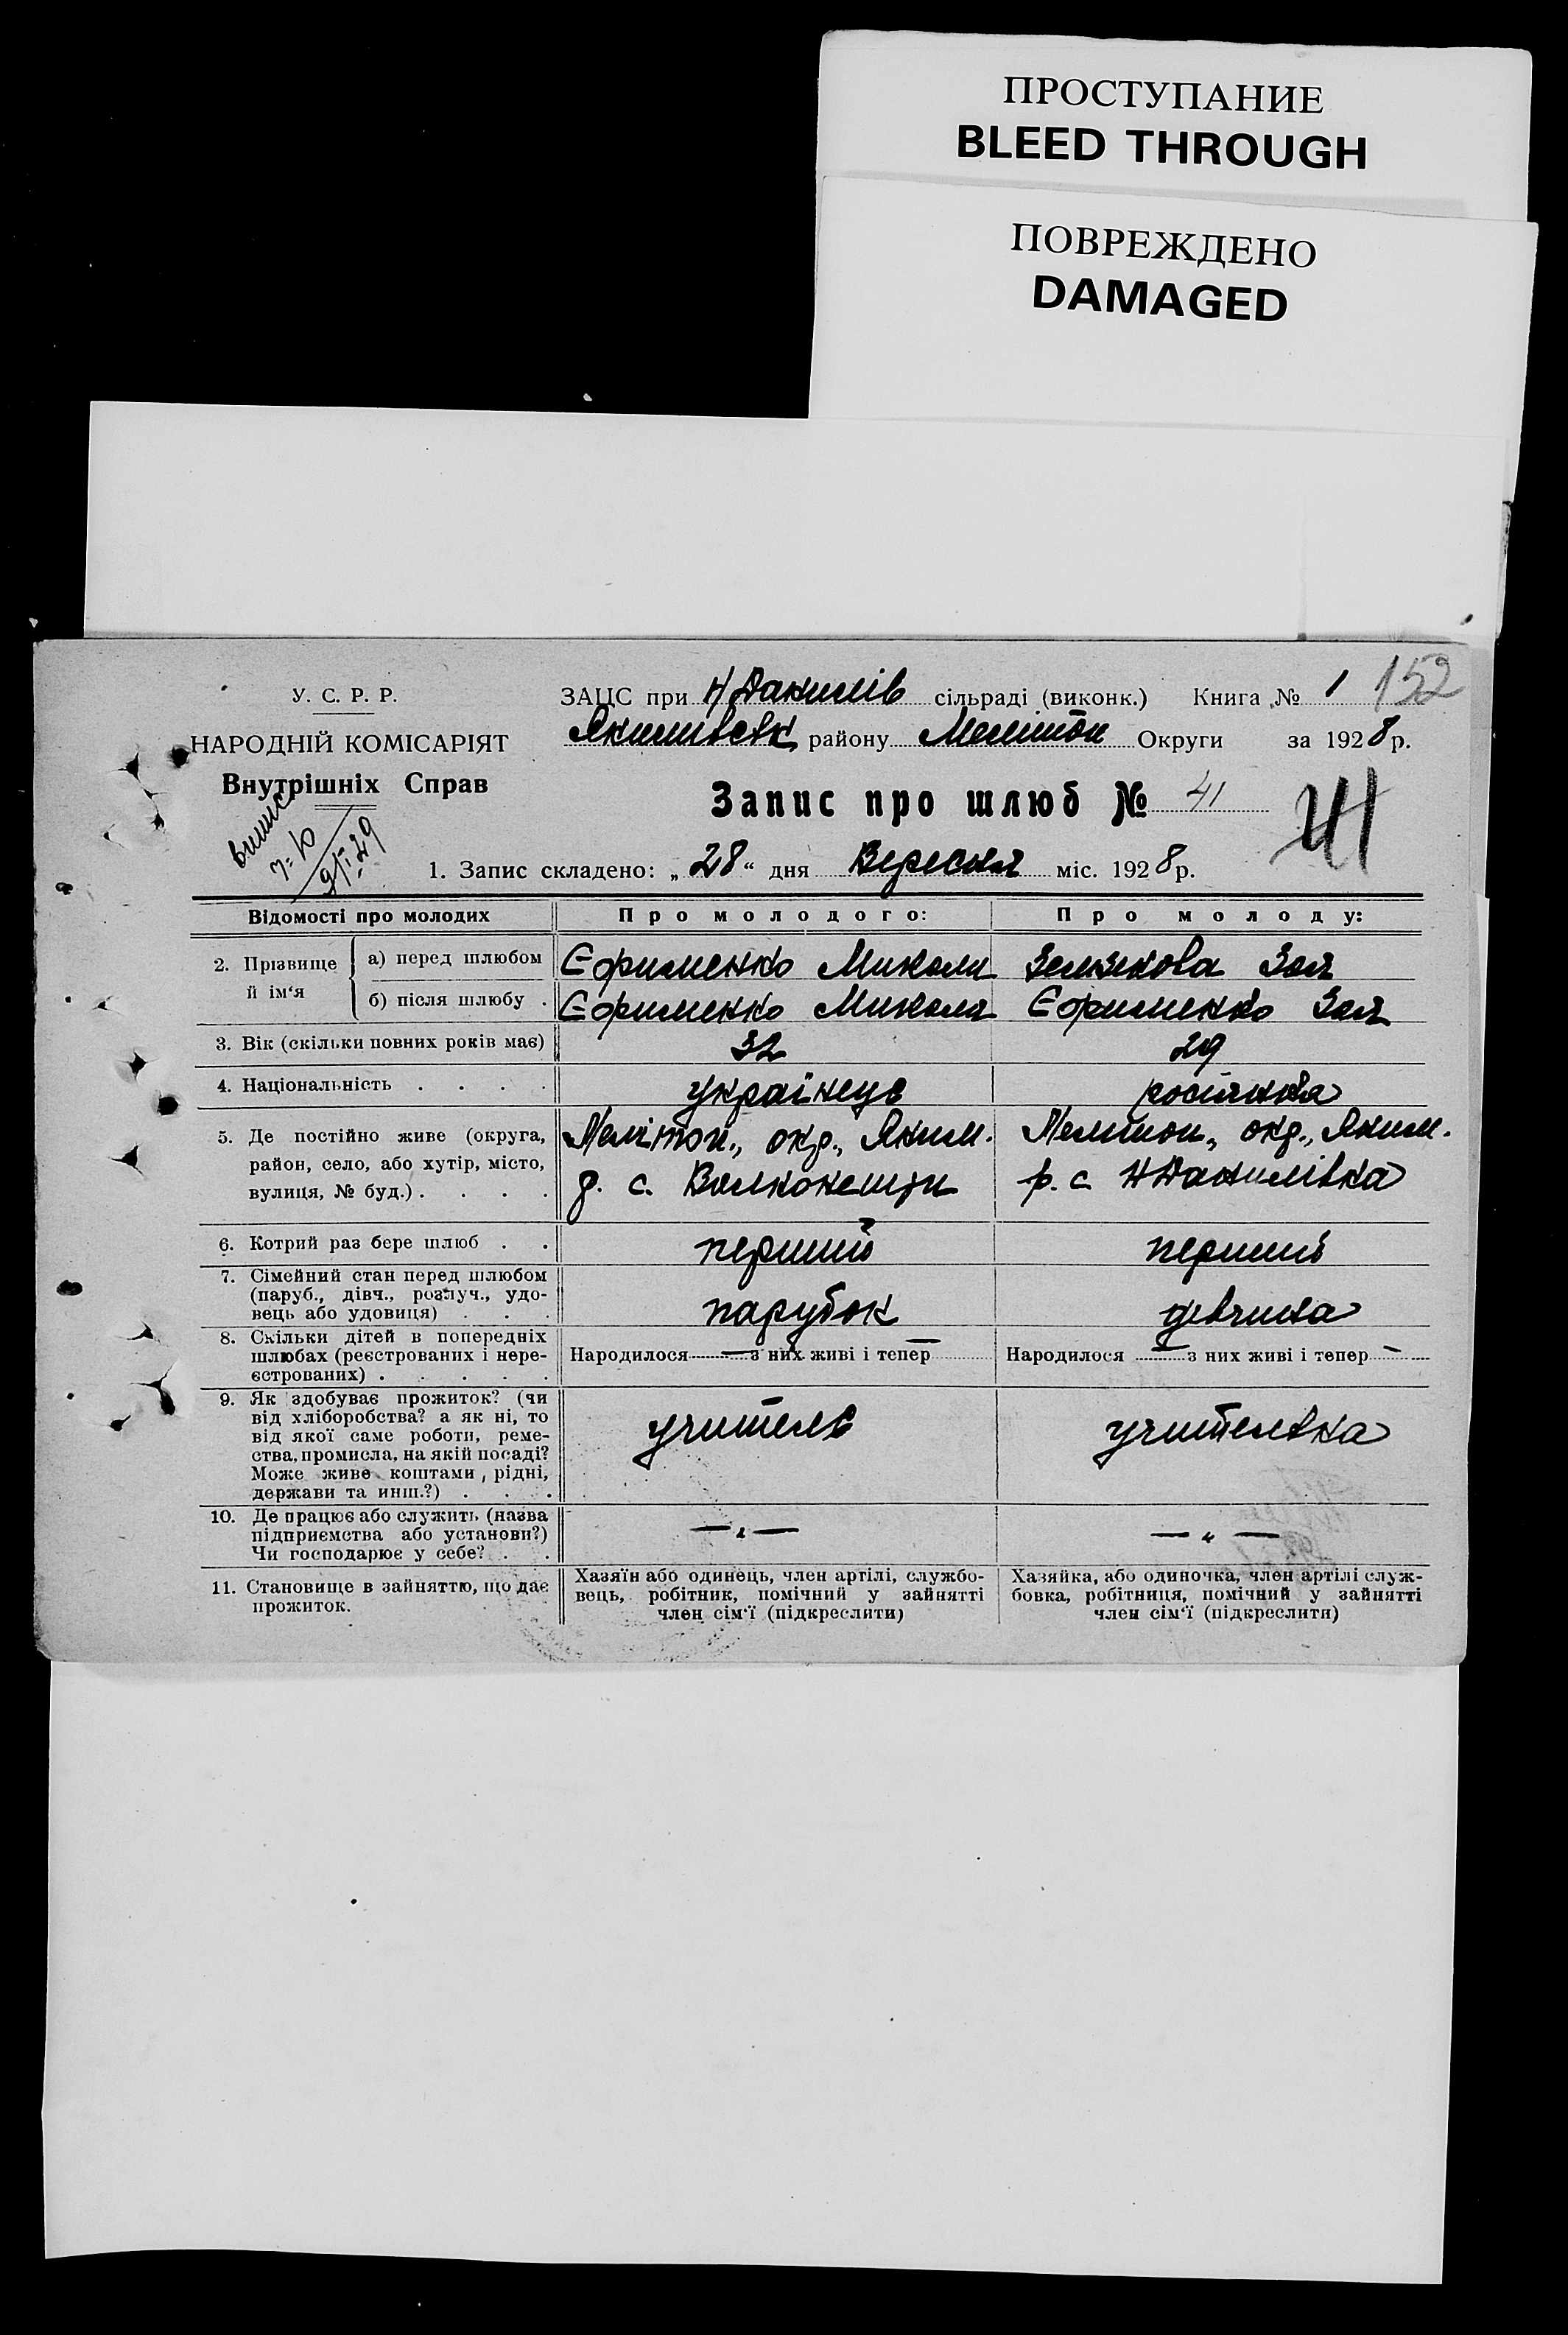 ПРОСТУПАНИЕ
BLEED THROUGH
ПОВРЕЖДЕНО
DAMAGED
152
У. С. Р. Р.
НАРОДНІЙ КОМІСАРІЯТ
Внутрішніх Справ
ЗАЦС при Н Данилів сільраді (виконк.) Книга № 1
Якимівськ району Меліton Округи за 1928 р.
Запис про шлюб № 41
41
1. Запис складено: „28“ дня Вересня міс. 1928 р.
Відомості про молодих Про молодого: Про молоду:
2. Прізвище й ім‘я
а) перед шлюбом Єфименко Микола Зоя
б) після шлюбу . Єфименко Микола Єфименко Зоя
3. Вік (скільки повних років має) 32 29
4. Національність . . . . українець росіянка
5. Де постійно живе (округа, район, село, або хутір, місто, вулиця, № буд.) . . . .
Меліtop., окр., Яким.
р. с.
Меліtop., окр., Яким.
р. с. Н Данилівка
6. Котрий раз бере шлюб . . перший перший
7. Сімейний стан перед шлюбом
(паруб., дівч., розлуч., удо-
вець або удовиця) . . . парубок девчина
8. Скільки дітей в попередніх
шлюбах (реєстрованих і нере-
єстрованих) . . . . .
Народилося — з них живі і тепер —
Народилося — з них живі і тепер —
9. Як здобуває прожиток? (чи
від хліборобства? а як ні, то
від якої саме роботи, реме-
ства, промисла, на якій посаді?
Може живе коштами, рідні,
держави та инш.?) . . .
учитель учителька
10. Де працює або служить (назва
підприємства або установи?)
Чи господарює у себе? . .
— „ — — „ —
11. Становище в зайняттю, що дає
прожиток.
Хазяїн або одинець, член артілі, службо-
вець, робітник, помічний у зайнятті
член сім‘ї (підкреслити)
Хазяйка, або одиночка, член артілі служ-
бовка, робітниця, помічний у зайнятті
член сім‘ї (підкреслити)